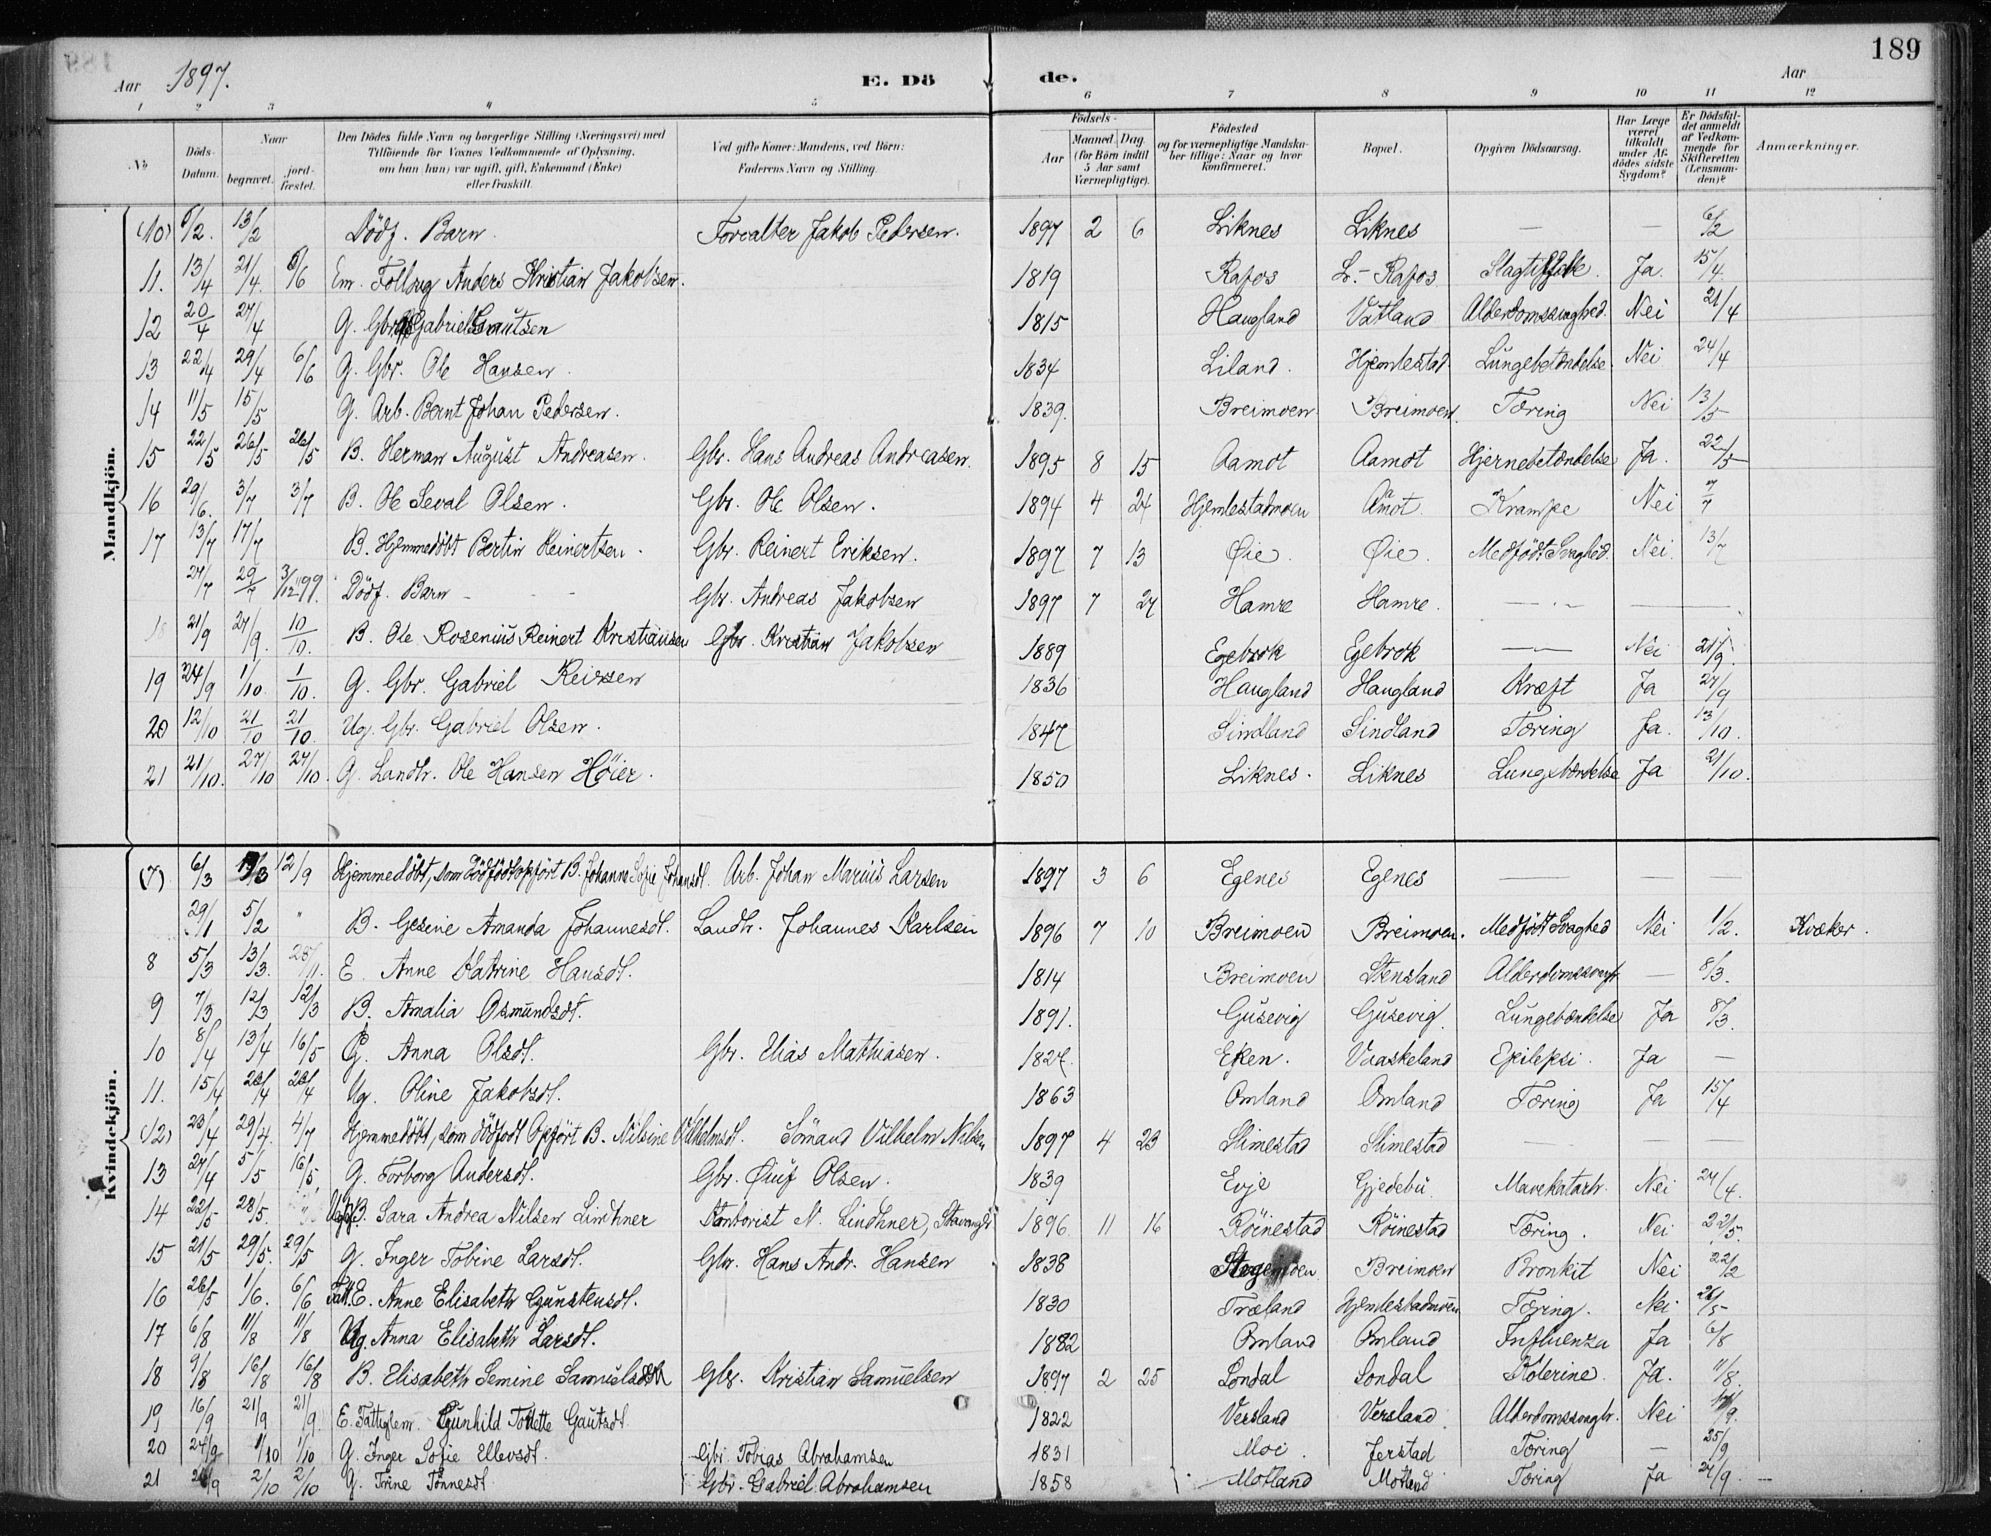 189
Aar 1897. E. Dö de. Aar
1 2 3 4 5 6 7 8 9 10 11 12
No Döds-Datum. Naar begravet. jord-fæstet. Den Dödes fulde Navn og borgerlige Stilling (Næringsvei) med Tilföiende for Voxnes Vedkommende af Oplysning, om han (hun) var ugift, gift, Enkemand (Enke) eller fraskilt. Ved gifte Koner: Mandens, ved Börn: Faderens Navn og Stilling. Födsels- Aar Maaned. Dag. (for Börn indtil 5 Aar samt Værnepligtige). Födested og for værnepligtige Mandska-ber tillige: Naar og hvor konfirmeret. Bopæl. Opgiven Dödsaarsag. Har Læge været tilkaldt under Af-dödes sidste Sygdom? Er Dödsfal-det anmeldt af Vedkom-mende for Skifteretten (Lensman-den)? Anmærkninger.
Mandkjön.
(10) 6/2. 13/2 Dödf. Barn. Forvalter Jakob Pedersen. 1897 2 6 Liknes Liknes — — 6/2
11. 13/4 21/4. 6/6 Em. Anders Kristian Jakobsen. 1819 Rafos L.- Rafos Ja. 15/4.
12 20/4 27/4 G. Gbr. Gabriel 1815 Haugland Vatland Alderdomssvaghed. Nei 21/4
13 22/4 29/4 6/6 G. Gbr. Ole Hansen. 1834 Liland. Hjemlestad. Lungebetændelse. Nei 24/4
14 11/5 15/5 G. Arb. Bernt Johan Pedersen. 1839. Breimoen Breimoen. Tæring Nei 13/5
15 22/5 26/5 26/5 B. Herman August Andreasen. Gbr. Hans Andreas Andreasen. 1895 8 15 Aamot Aamot Hjernebetændelse Ja. 22/5
16 29/6. 3/7 3/7 B. Ole Seval Olsen. Gbr. Ole Olsen. 1894 4 24 Hjemlestadmoen Åmot Krampe Nei 7/7
17 13/7 17/7 B. Hjemmedöbt Bertin Reinertsen. Gbr. Reinert Eriksen. 1897 7 13 Øie. Øie. Medfödt Svaghed. Nei. 13/7
27/7 29/7 3/12 99. Dödf. Barn - - Gbr. Andreas Jakobsen 1897 7 27 Hamre Hamre. — —
18 21/9 27/9. 10/10. B. Ole Rosenius Reinert Kristiansen Gbr. Kristian Jakobsen 1889 Egebrok Egebrok — Nei 21/9.
19 24/9 1/10. 1/10. G. Gbr. Gabriel Reiersen 1836 Haugland Haugland Kræft Ja 27/9
20 12/10 21/10 21/10. Ug. Gbr. Gabriel Olsen. 1847 Sindland Sindland Tæring Ja. 13/10.
21 21/10. 27/10 27/10. G. Landh. Ole Hansen Höier. 1850 Liknes. Liknes Ja 21/10.
Kvindekjön.
(7) 6/3 13/3 12/9 Hjemmedöbt, som Dödfödt opfört B. Johanne Sofie Johansdt. Arb. Johan Marius Larsen 1897 3 6 Egenes Egenes — — —
29/1 5/2 " B. Gesine Amanda Johannesdt. Landh. Johannes Karlsen 1896 7 10 Breimoen Breimoen. Medfödt Svaghed Nei 1/2. Kvæker.
8 5/3 13/3. 28/11. E. Anne Katrine Hansdt. 1814 Breimoen Stensland — 8/3.
9 7/3 12/3 12/3 B. Amalia Osmundsdt. 1891. Gusevig Gusevig. Ja 8/3.
10 8/4 13/4 16/5 G. Anna Olsdt. Gbr. Elias Mathiasen. 1827. Eken. Vraskeland Epilepsi. Ja —
11. 15/4 20/4 20/4 Ug. Oline Jakobsdt. 1863 Omland Omland Tæring Ja 15/4
(12) 23/4 29/4. 4/7 Hjemmedöbt, som dödfödt Opfört B. Nilsine Vilhelmsdt. Sömand Vilhelm Nilsen 1897 4 23 Slimestad Slimestad — —
13 27/4 5/5 16/5. G. Torborg Andersdt. Gbr. Øiuf Olsen. 1839 Evje Gjedebu. Mavekatarh. Nei 27/4.
14 22/5 28/5. " B. Sara Andrea Nilsen Lindhner N. Lindhner, 1896 11 16 Röinestad Röinestad Tæring. Nei 22/5.
15 21/5 29/5. 29/5 G. Inger Tobine Larsdt. Gbr. Hans Andr. Hansen 1838 Breimoen Bronkit Nei 22/2
16 26/5 1/6. 6/6 Fatt. E. Anne Elisabeth Gunstensdt. 1830 Træland Hjemlestadmoen Tæring. Nei 26/5
17 6/8 11/8 11/8 Ug. Anna Elisabeth Larsdt. 1882 Omland Omland Influenza Ja 6/8
18 9/8 16/8 16/8 B. Elisabeth Semine Samuelsdt Gbr. Kristian Samuelsen 1897 2 25 Londal Londal Kolerine. Ja. 11/8.
19 16/9 21/9 21/9. E. Fattiglem. Gunhild Todette Gautsdt. 1822 Versland Versland. Nei 17/9.
20 24/9 1/10 1/10 G. Inger Sofie Ellevsdt. Gbr. Tobias Abrahamsen 1831 Moi. Jerstad Tæring — 25/9
21 2/10 2/10 G. Trine Tönnesdt. Gbr. Gabriel Abrahamsen 1858 Motland Motland Tæring Ja 27/9. —